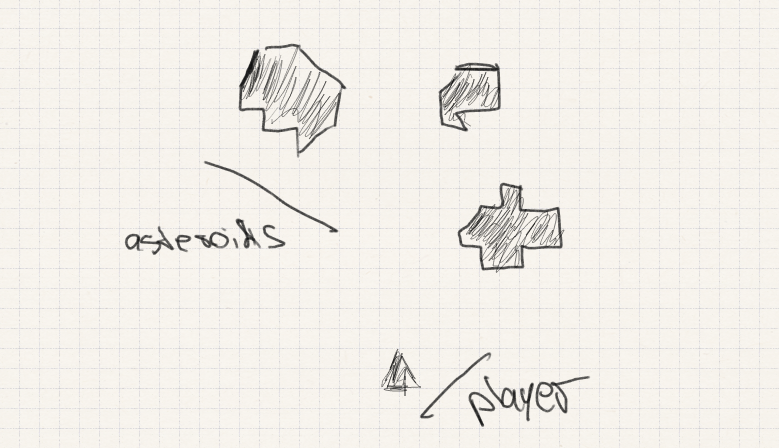 asteroids
player